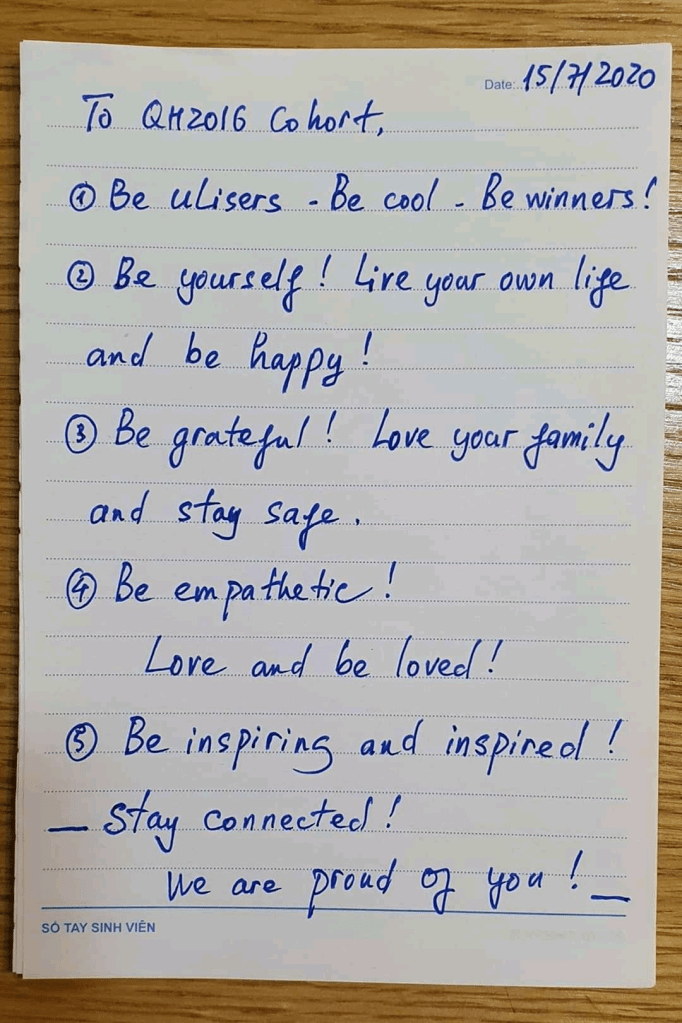 Date: 15/7/2020
To QH2016 Cohort,
① Be uLisers - Be cool - Be winners!
② Be yourself! Live your own life
and be happy!
③ Be grateful! Love your family
and stay safe.
④ Be empathetic!
Love and be loved!
⑤ Be inspiring and inspired!
— Stay connected!
We are proud of you! —
SỔ TAY SINH VIÊN